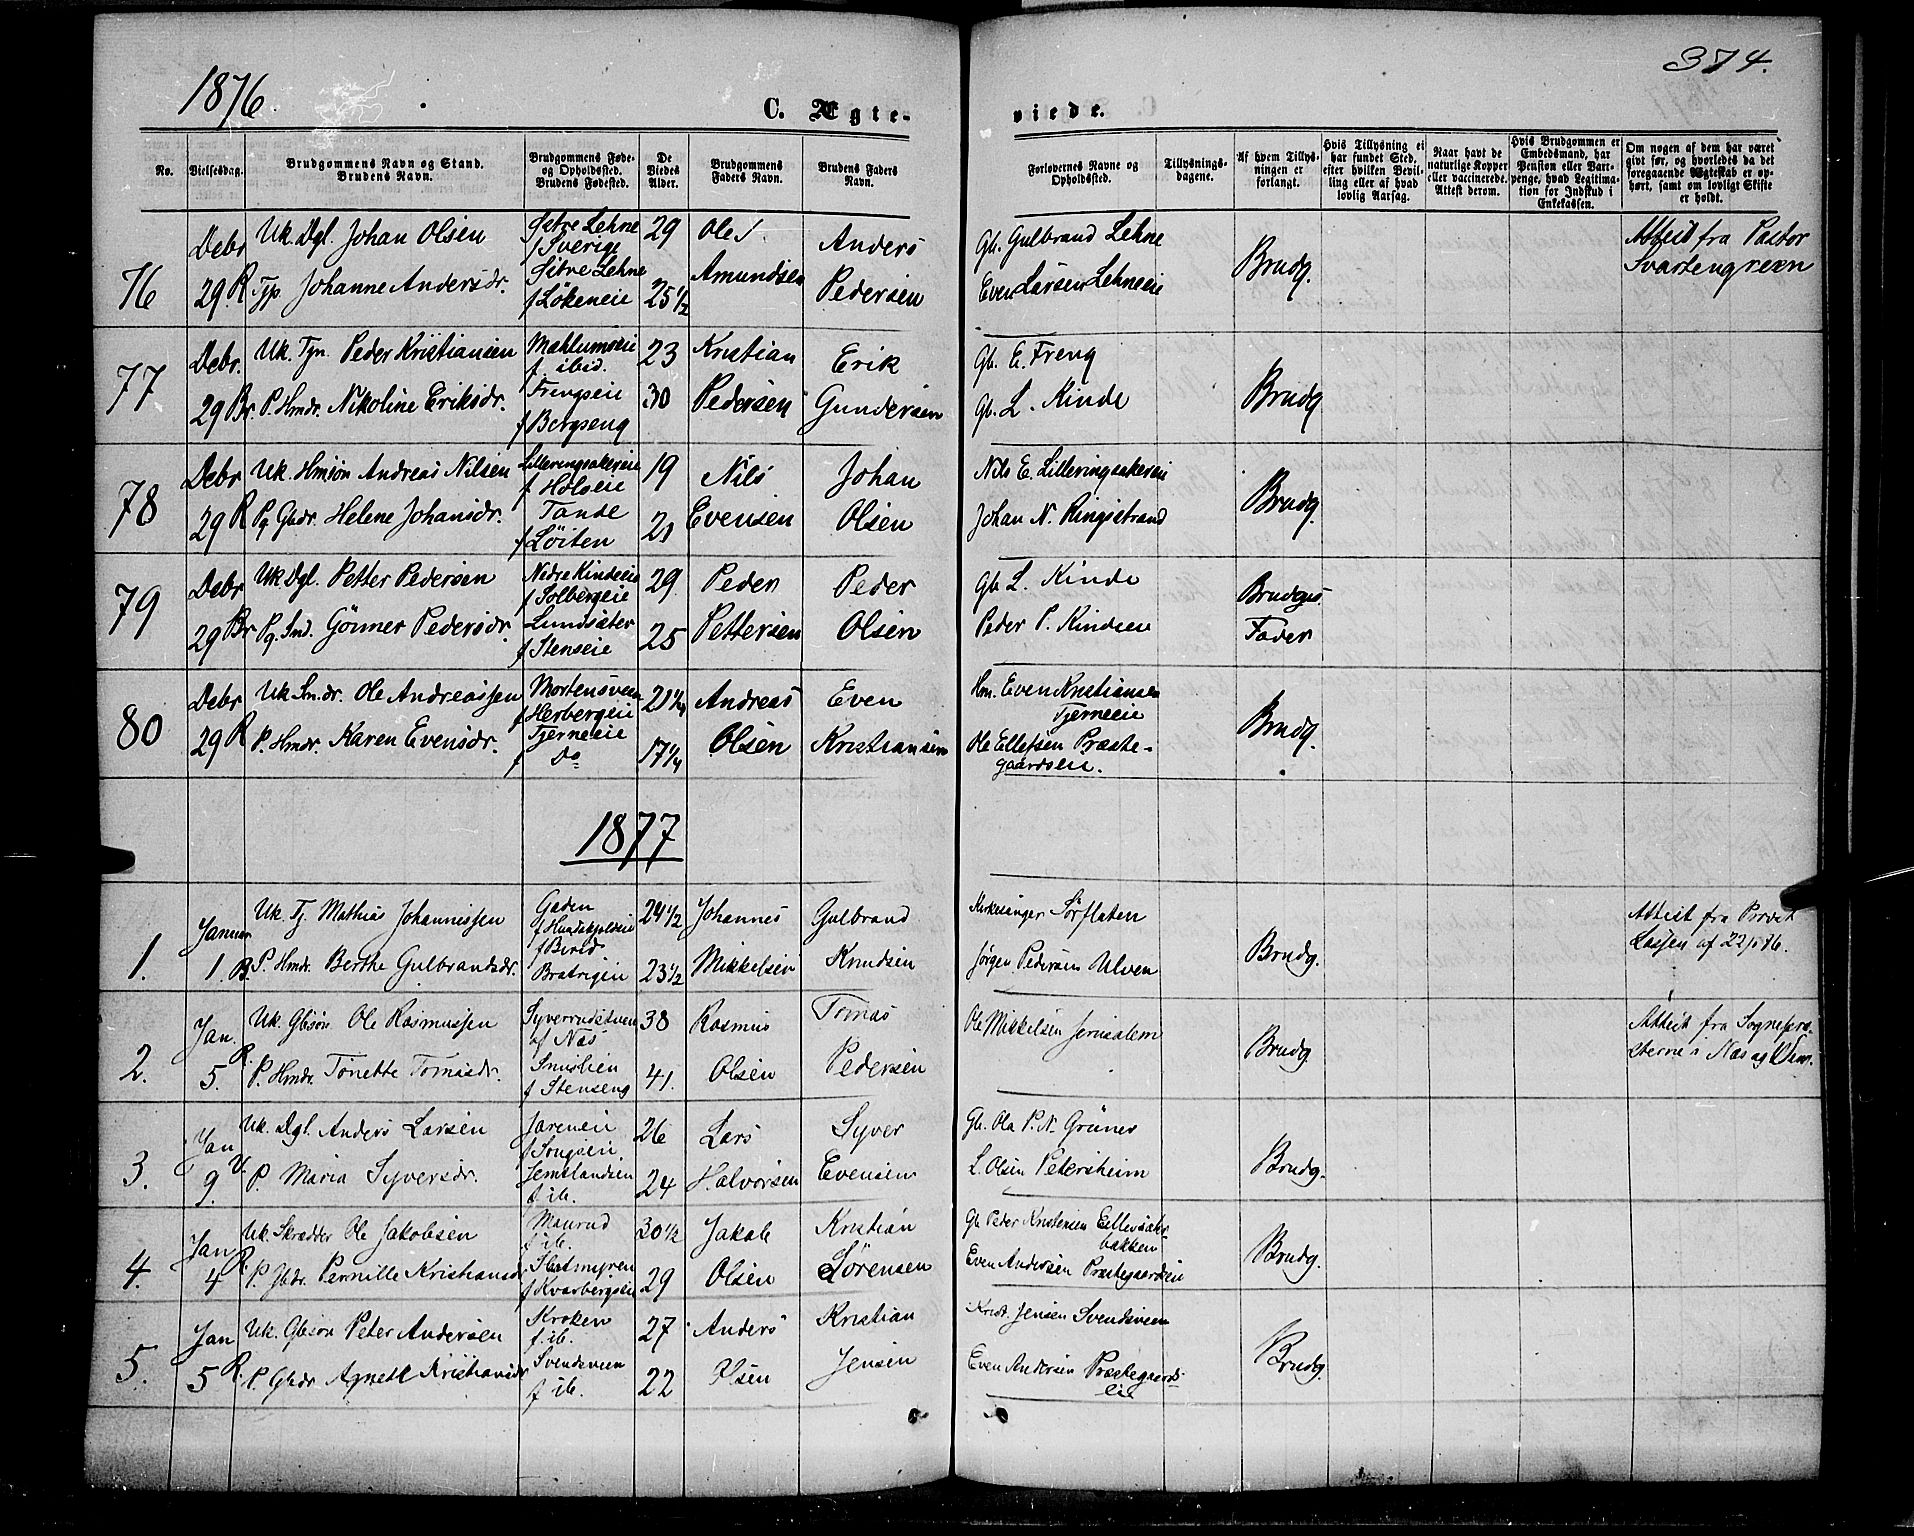 1876.
374.
C. Ægte-
viede.
No.
Vielsesdag.
Brudgommens Navn og Stand.
Brudens Navn.
Brudgommens Føde-
og Opholdssted.
Brudens Fødested.
De
Viedes
Alder.
Brudgommens
Faders Navn.
Brudens Faders
Navn.
Forlovernes Navne og
Opholdssted.
Tillysnings-
dagene.
Af hvem Tillys-
ningen er
forlangt.
Hvis Tillysning ei
har fundet Sted,
efter hvilken Bevil-
ling eller af hvad
lovlig Aarsag.
Naar havt de
naturlige Kopper
eller vaccinerede.
Attest derom.
Hvis Brudgommen er
Embedsmand, har
Pension eller Var-
penge, hvad Legitima-
tion for Indskud i
Enkekassen.
Om nogen af dem har været
givt før, og hvorledes da det
foregaaende Ægteskab er op-
hørt, samt om lovligt Skifte
er holdt.
76
Debr
29 R
Uk. Dgl. Johan Olsen
Tjp Johanne Andersdr.
Setre Lehne
f Sverige
Setre Lehne
f Løkeneie
29
25 1/2
Ole
Amundsen
Anders
Pedersen
Gb. Gulbrand Lehne
Even Larsen Lehneeie
Brudg.
Attest fra Pastor
Svartengreen
77
Debr.
29 Br
Uk. Tjn Peder Kristiansen
P. Hmdr. Nikoline Eriksdr.
Mæhlumseie
f. ibid.
Frengseie
f Bergseng
23
30
Kristian
Pedersen
Erik
Gundersen
Gb. E. Freng
Gb. L. Kinde
Brudg
78
Debr
29 R
Uk. Hmsøn Andreas Nilsen
Pg Gbdr. Helene Johansdr.
Lilleringsakereie
f Holseie
Tande
f Løiten
19
21
Nils
Evensen
Johan
Olsen
Nils E. Lilleringsakereie
Johan N. Ringsetrand
Brudg.
79
Debr
29 Br
Uk Dgl. Petter Pedersen
Pg. Smd. Gönner Pedersdr
Nedre Kindeeie
f Solbergeie
Lundsæter
f Stenseie
29
25
Peder
Pettersen
Peder
Olsen
Gb L. Kinde
Peder P. Kindeeie
Brudgs.
Fader
80
Debr
29 R
Uk Sm.dr. Ole Andreassen
P. Hmdr. Karen Evensdr.
Mortensveen
f Herbergeie
Tjerneeie
f Do
21 1/4
17 1/4
Andreas
Olsen
Even
Kristiansen
Hm. Even Kristiansen
Tjerneeie
Ole Ellefsen Præste-
gaardseie.
Brudg.
1877
1.
Januar
1. B.
Uk. Tj. Mathias Johannessen
P. Hmdr. Berthe Gulbrandsdr.
Gaden
f Hundskjoldseie
f Birid.
Bratrigeie
24 1/2
23 1/2
Johannes
Mikkelsen
Gulbrand
Knudsen
Kirkesanger Sørflaten
Jørgen Pedersen Ulven
Brudg.
Attest fra Provst
Lassen af 22/1 76.
2.
Jan.
5. R.
Uk. Gbsøn Ole Rasmussen
P. Hmdr. Tonette Tomasdr.
Syverrudstuen
af Næs
Smislien
f Stenseng
38
41.
Rasmus
Olsen
Tomas
Pedersen
Ole Mikkelsen Jerusalem
Brudg
Attest fra Sognepræ-
sterne i Næs og
3.
Jan
9. V.
Uk. Dgl. Anders Larsen
P. Maria Syversdr.
Jareneie
f Songseie.
Jemtlandseie
f. ib.
26
24
Lars
Halvorsen
Syver
Evensen
Gb. Ola P. N. Grünes
L. Olsen Petersheim
Brudg.
4.
Jan
4 R.
Uk. Skrædder Ole Jakobsen
P. Gbdr. Pernille Kristiansdr
Maurud
f. ib.
Slatmyren
f Kvarbergseie
30 1/2
29
Jakob
Olsen
Kristian
Sørensen
Gb Peder Kristensen Ellevsæter-
bakken
Even Andersen Præstegaardseie
Brudg.
5.
Jan
5 R.
Uk. Gbsøn Peter Andersen
P. Gbdr Agnete Kristiansdr
Kroken
f. ib.
Svendsveen
f ib.
27
22
Anders
Olsen
Kristian
Jensen
Krist. Jensen Svendsveen
Even Andersen Præstegaards-
eie
Brudg.